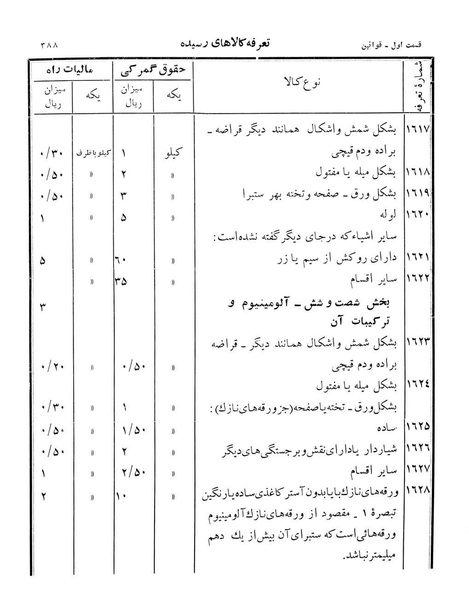 قسمت اول - قوانین
تعرفه کالاهای رسیده
۳۸۸
شمارهٔ تعرفه
نوع کالا
حقوق گمرکی
مالیات راه
یکه
میزان ریال
یکه
میزان ریال
۱۶۱۷ بشکل شمش و اشکال همانند دیگر قراضه -
براده و دم قیچی کیلو ۱ کیلو با ظرف ۰/۳۰
۱۶۱۸ بشکل میله یا مفتول » ۲ » ۰/۵۰
۱۶۱۹ بشکل ورق - صفحه و تخته بهر ستبرا » ۳ » ۰/۵۰
۱۶۲۰ لوله » ۵ » ۱
سایر اشیاء که در جای دیگر گفته نشده است:
۱۶۲۱ دارای روکش از سیم یا زر » ۶۰ » ۵
۱۶۲۲ سایر اقسام » ۳۵ »
بخش شصت و شش - آلومینیوم و ۳
ترکیبات آن
۱۶۲۳ بشکل شمش و اشکال همانند دیگر - قراضه
براده و دم قیچی » ۰/۵۰ » ۰/۲۰
۱۶۲۴ بشکل میله یا مفتول
بشکل ورق - تخته یا صفحه (جز ورقه های نازک): » ۱ » ۰/۳۰
۱۶۲۵ ساده » ۱/۵۰ » ۰/۵۰
۱۶۲۶ شیاردار یا دارای نقش و برجستگی های دیگر » ۲ » ۰/۵۰
۱۶۲۷ سایر اقسام » ۲/۵۰ » ۱
۱۶۲۸ ورقه های نازک با یا بدون آستر کاغذی ساده یا رنگین » ۱۰ » ۲
تبصرهٔ ۱ - مقصود از ورقه های نازک آلومینیوم
ورقه هائی است که ستبرای آن بیش از یک دهم
میلیمتر نباشد.